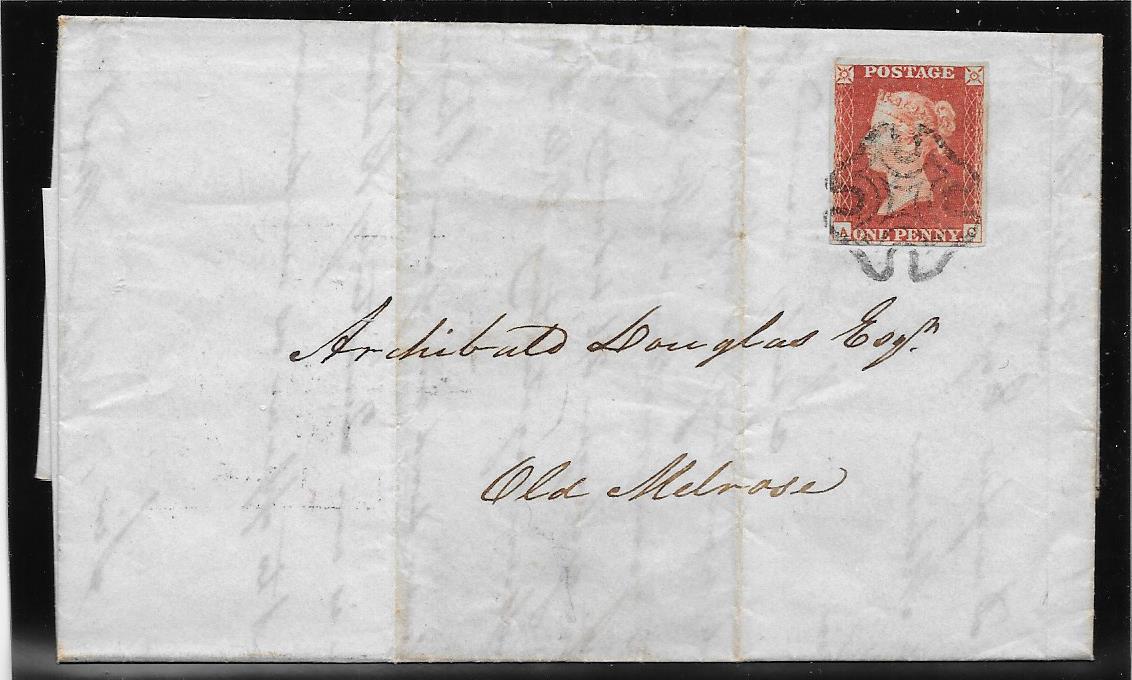 POSTAGE
A ONE PENNY C
Archibald Douglas Esqr.
Old Melrose